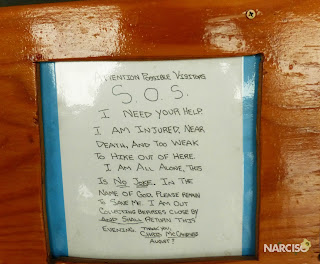 ATTENTION POSSIBLE VISITORS
S.O.S.
I NEED YOUR HELP.
I AM INJURED, NEAR
DEATH, AND TOO WEAK
TO HIKE OUT OF HERE.
I AM ALL ALONE, THIS
IS NO JOKE. IN THE
NAME OF GOD, PLEASE REMAIN
TO SAVE ME. I AM OUT
COLLECTING BERRIES CLOSE BY
AND SHALL RETURN THIS
EVENING. THANK YOU,
CHRIS McCANDLESS
AUGUST?
NARCISO